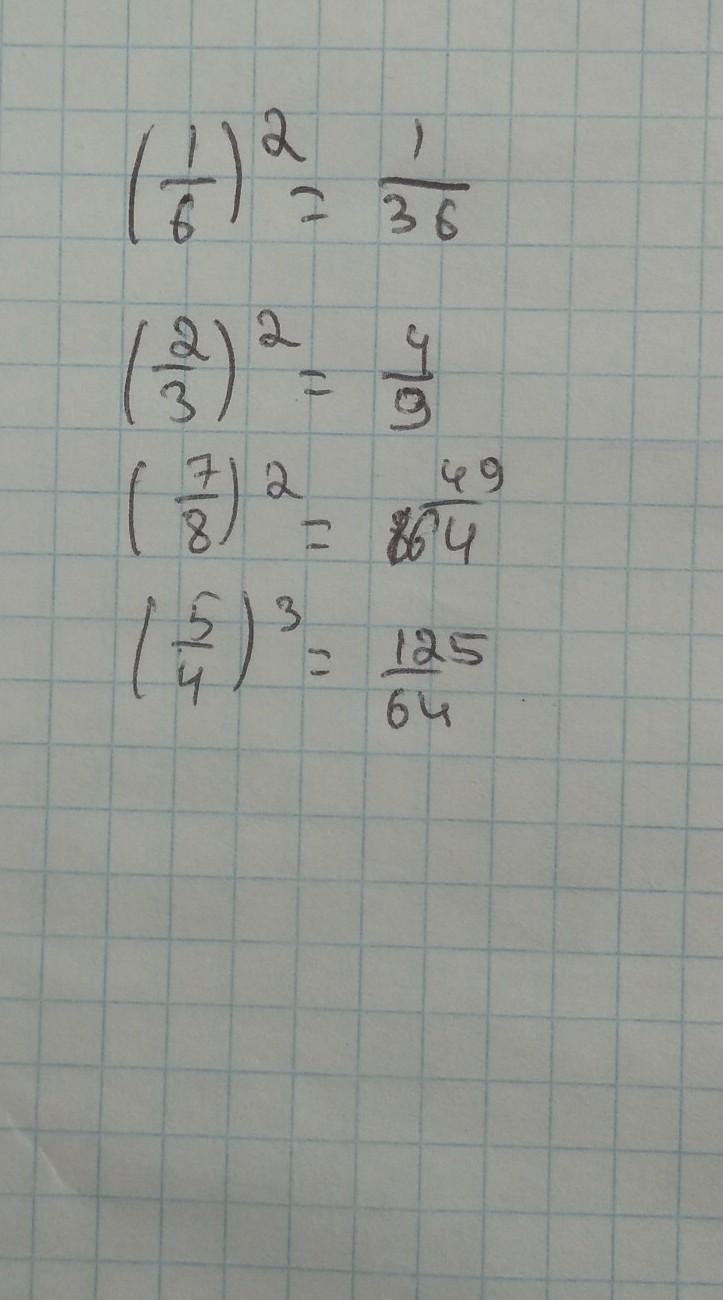 (1/6)² = 1/36
(2/3)² = 4/9
(7/8)² = 49/64
(5/4)³ = 125/64